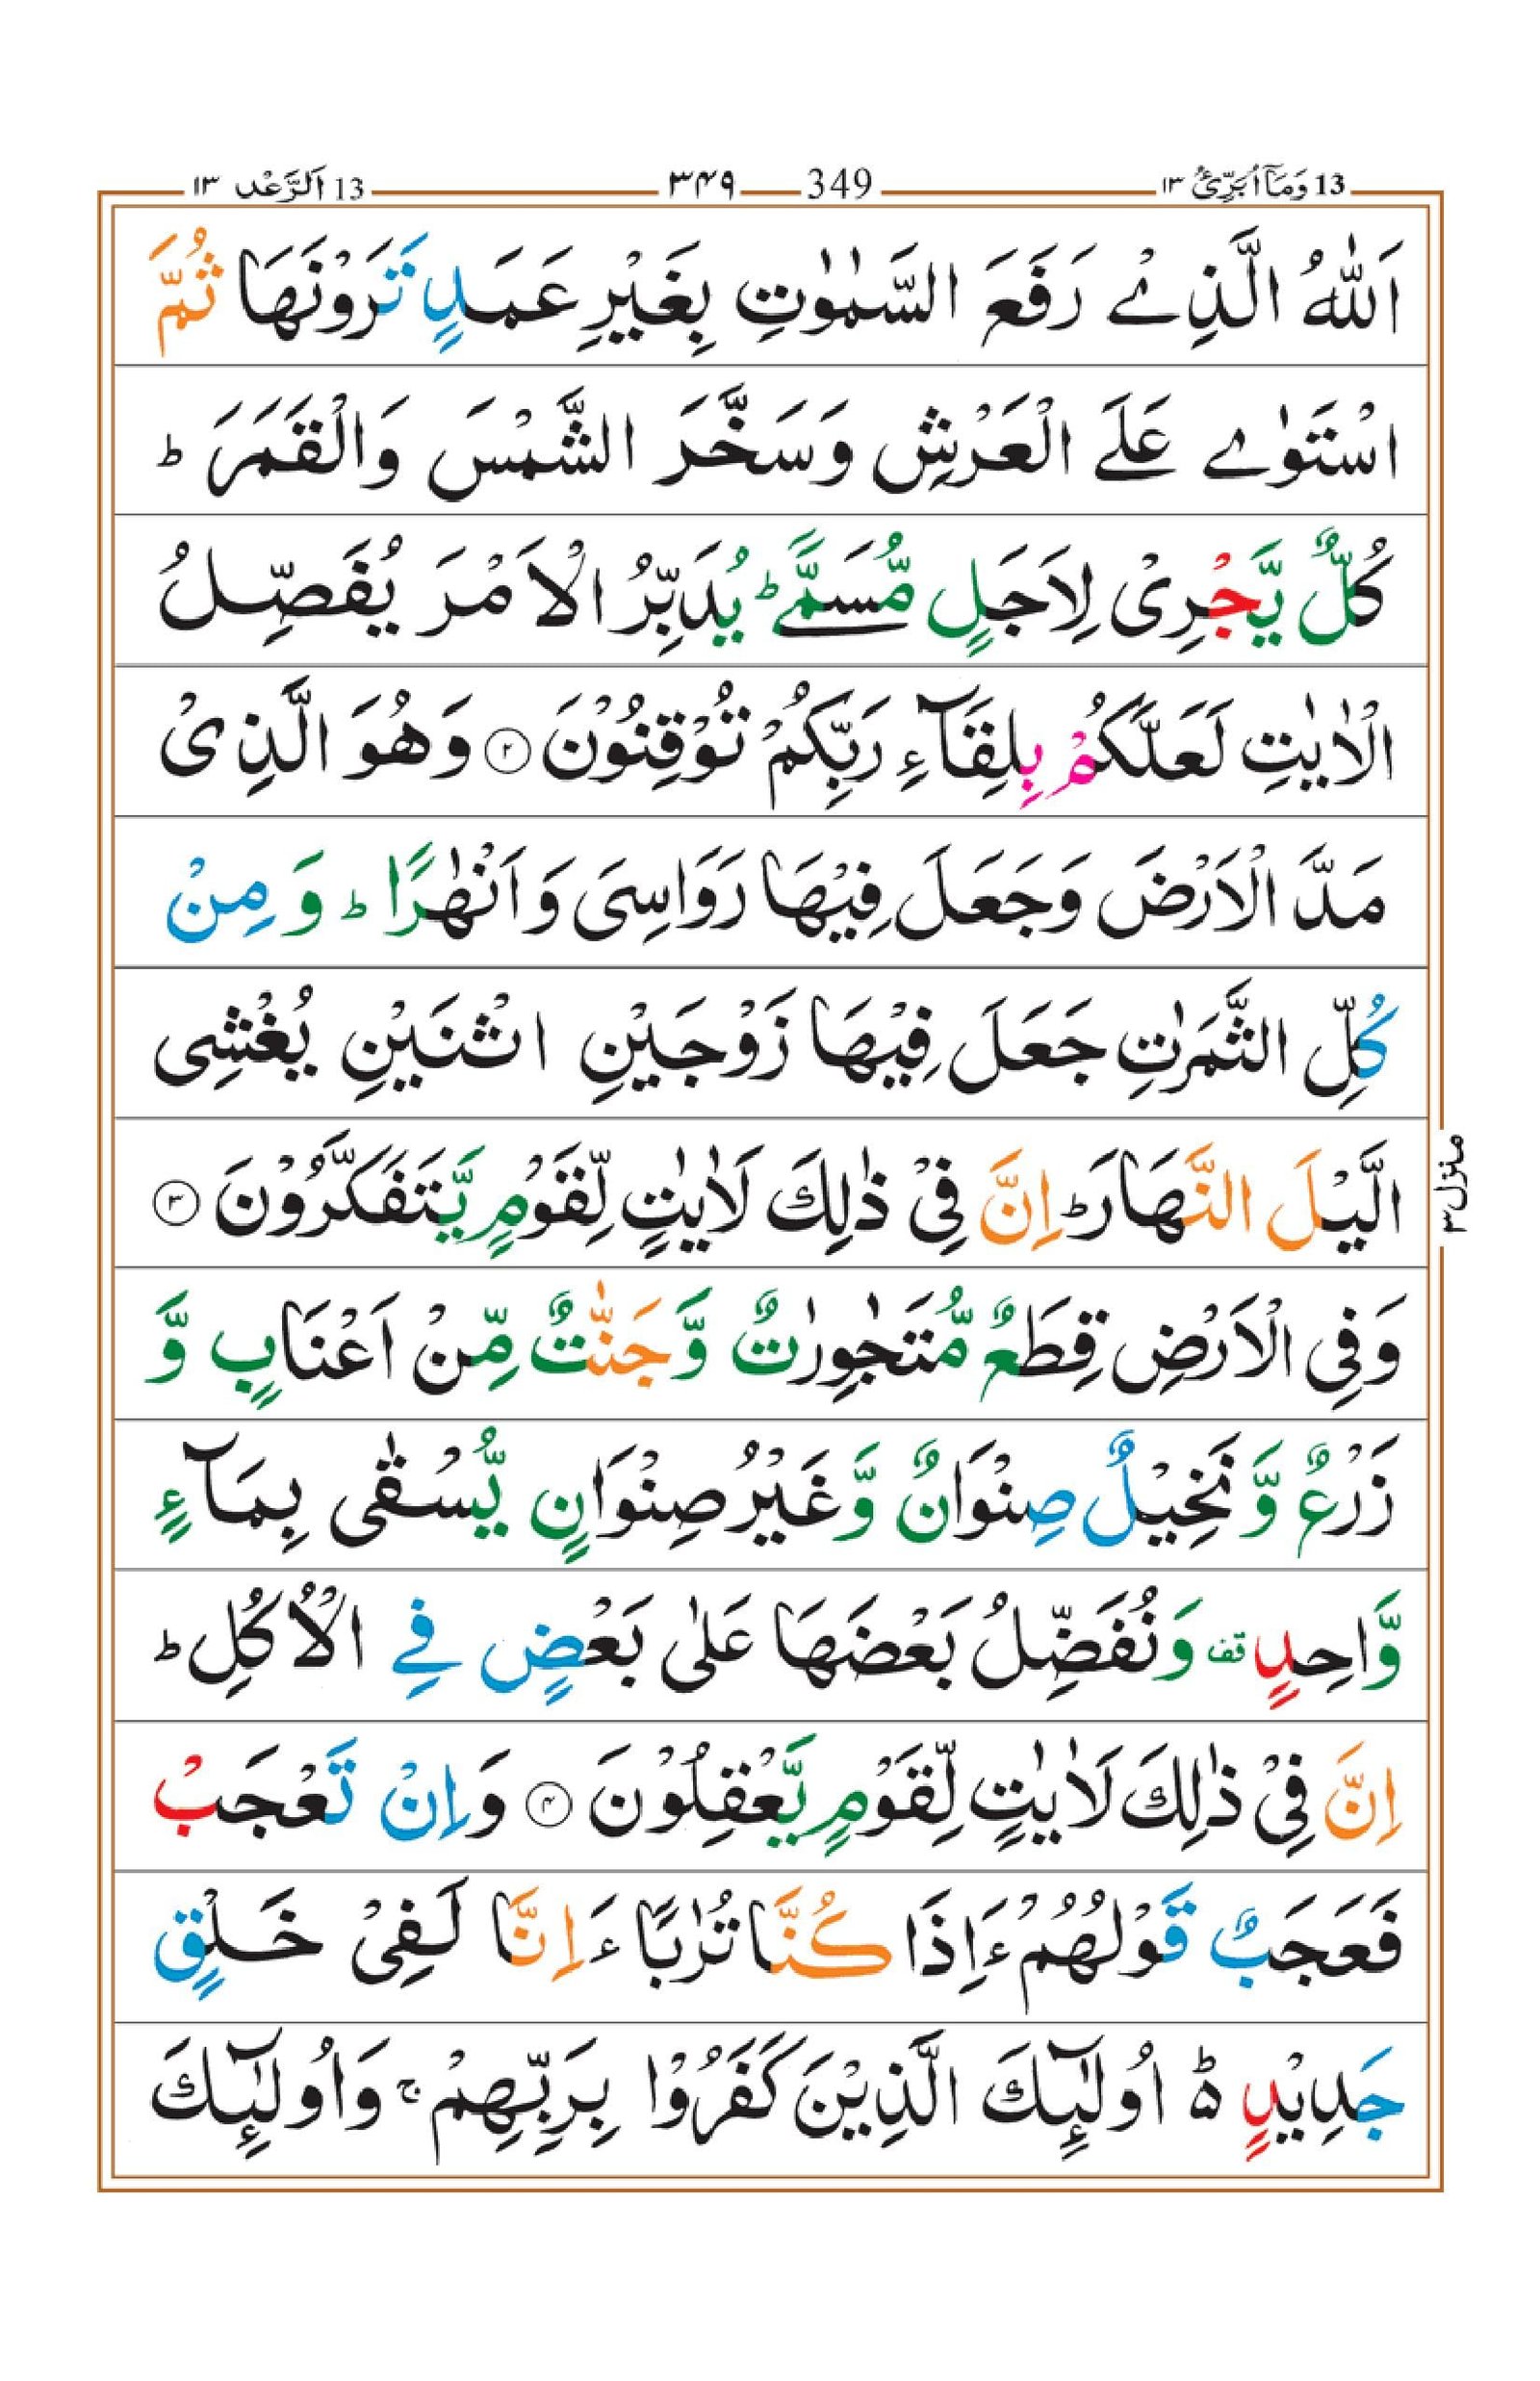 13 وَمَآ اُبَرِّئُ ١٣
349 ٣٤٩
13 اَلرَّعْد ١٣
اَللّٰهُ الَّذِىْ رَفَعَ السَّمٰوٰتِ بِغَيْرِ عَمَدٍ تَرَوْنَهَا ثُمَّ
اسْتَوٰى عَلَى الْعَرْشِ وَسَخَّرَ الشَّمْسَ وَالْقَمَرَ ؕ
كُلٌّ يَّجْرِىْ لِاَجَلٍ مُّسَمًّى ؕ يُدَبِّرُ الْاَمْرَ يُفَصِّلُ
الْاٰيٰتِ لَعَلَّكُمْ بِلِقَآءِ رَبِّكُمْ تُوْقِنُوْنَ ۝٢ وَهُوَ الَّذِىْ
مَدَّ الْاَرْضَ وَجَعَلَ فِيْهَا رَوَاسِىَ وَاَنْهٰرًا ؕ وَمِنْ
كُلِّ الثَّمَرٰتِ جَعَلَ فِيْهَا زَوْجَيْنِ اثْنَيْنِ يُغْشِى
الَّيْلَ النَّهَارَ ؕ اِنَّ فِىْ ذٰلِكَ لَاٰيٰتٍ لِّقَوْمٍ يَّتَفَكَّرُوْنَ ۝٣
وَفِى الْاَرْضِ قِطَعٌ مُّتَجٰوِرٰتٌ وَّجَنّٰتٌ مِّنْ اَعْنَابٍ وَّ
زَرْعٌ وَّنَخِيْلٌ صِنْوَانٌ وَّغَيْرُ صِنْوَانٍ يُّسْقٰى بِمَآءٍ
وَّاحِدٍ قف وَنُفَضِّلُ بَعْضَهَا عَلٰى بَعْضٍ فِى الْاُكُلِ ؕ
اِنَّ فِىْ ذٰلِكَ لَاٰيٰتٍ لِّقَوْمٍ يَّعْقِلُوْنَ ۝٤ وَاِنْ تَعْجَبْ
فَعَجَبٌ قَوْلُهُمْ ءَاِذَا كُنَّا تُرٰبًا ءَاِنَّا لَفِىْ خَلْقٍ
جَدِيْدٍ ؕ۬ اُولٰٓئِكَ الَّذِيْنَ كَفَرُوْا بِرَبِّهِمْ ۚ وَاُولٰٓئِكَ
منزل ٣